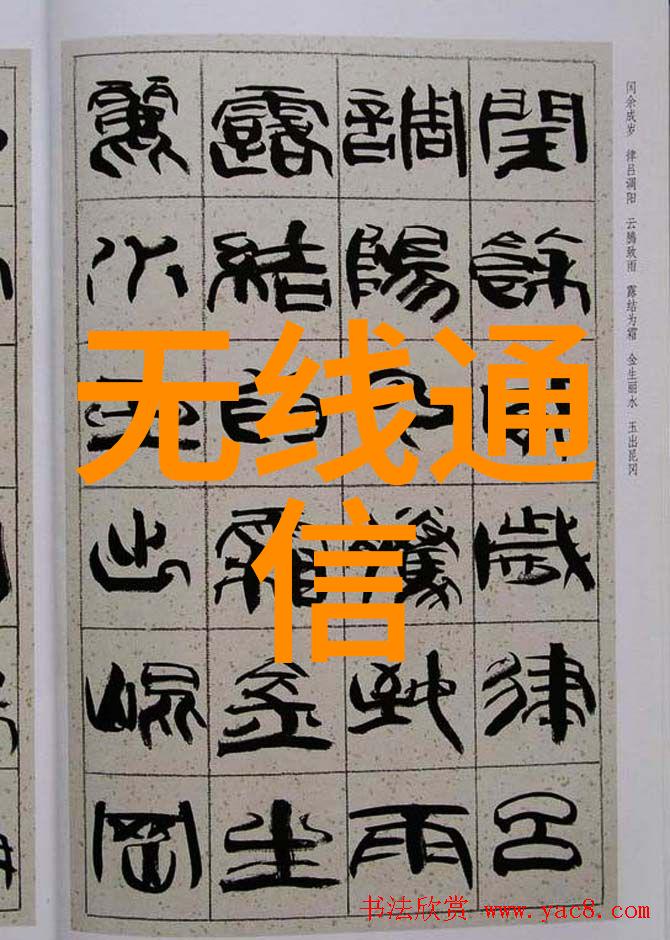 闰余成岁 律吕调阳 云腾致雨 露结为霜 金生丽水 玉出昆冈
閏餘成歲律呂
調陽云騰致雨
露結為霜金生
麗水玉出崐岡
无线通
信
书法欣赏 www.yac8.com